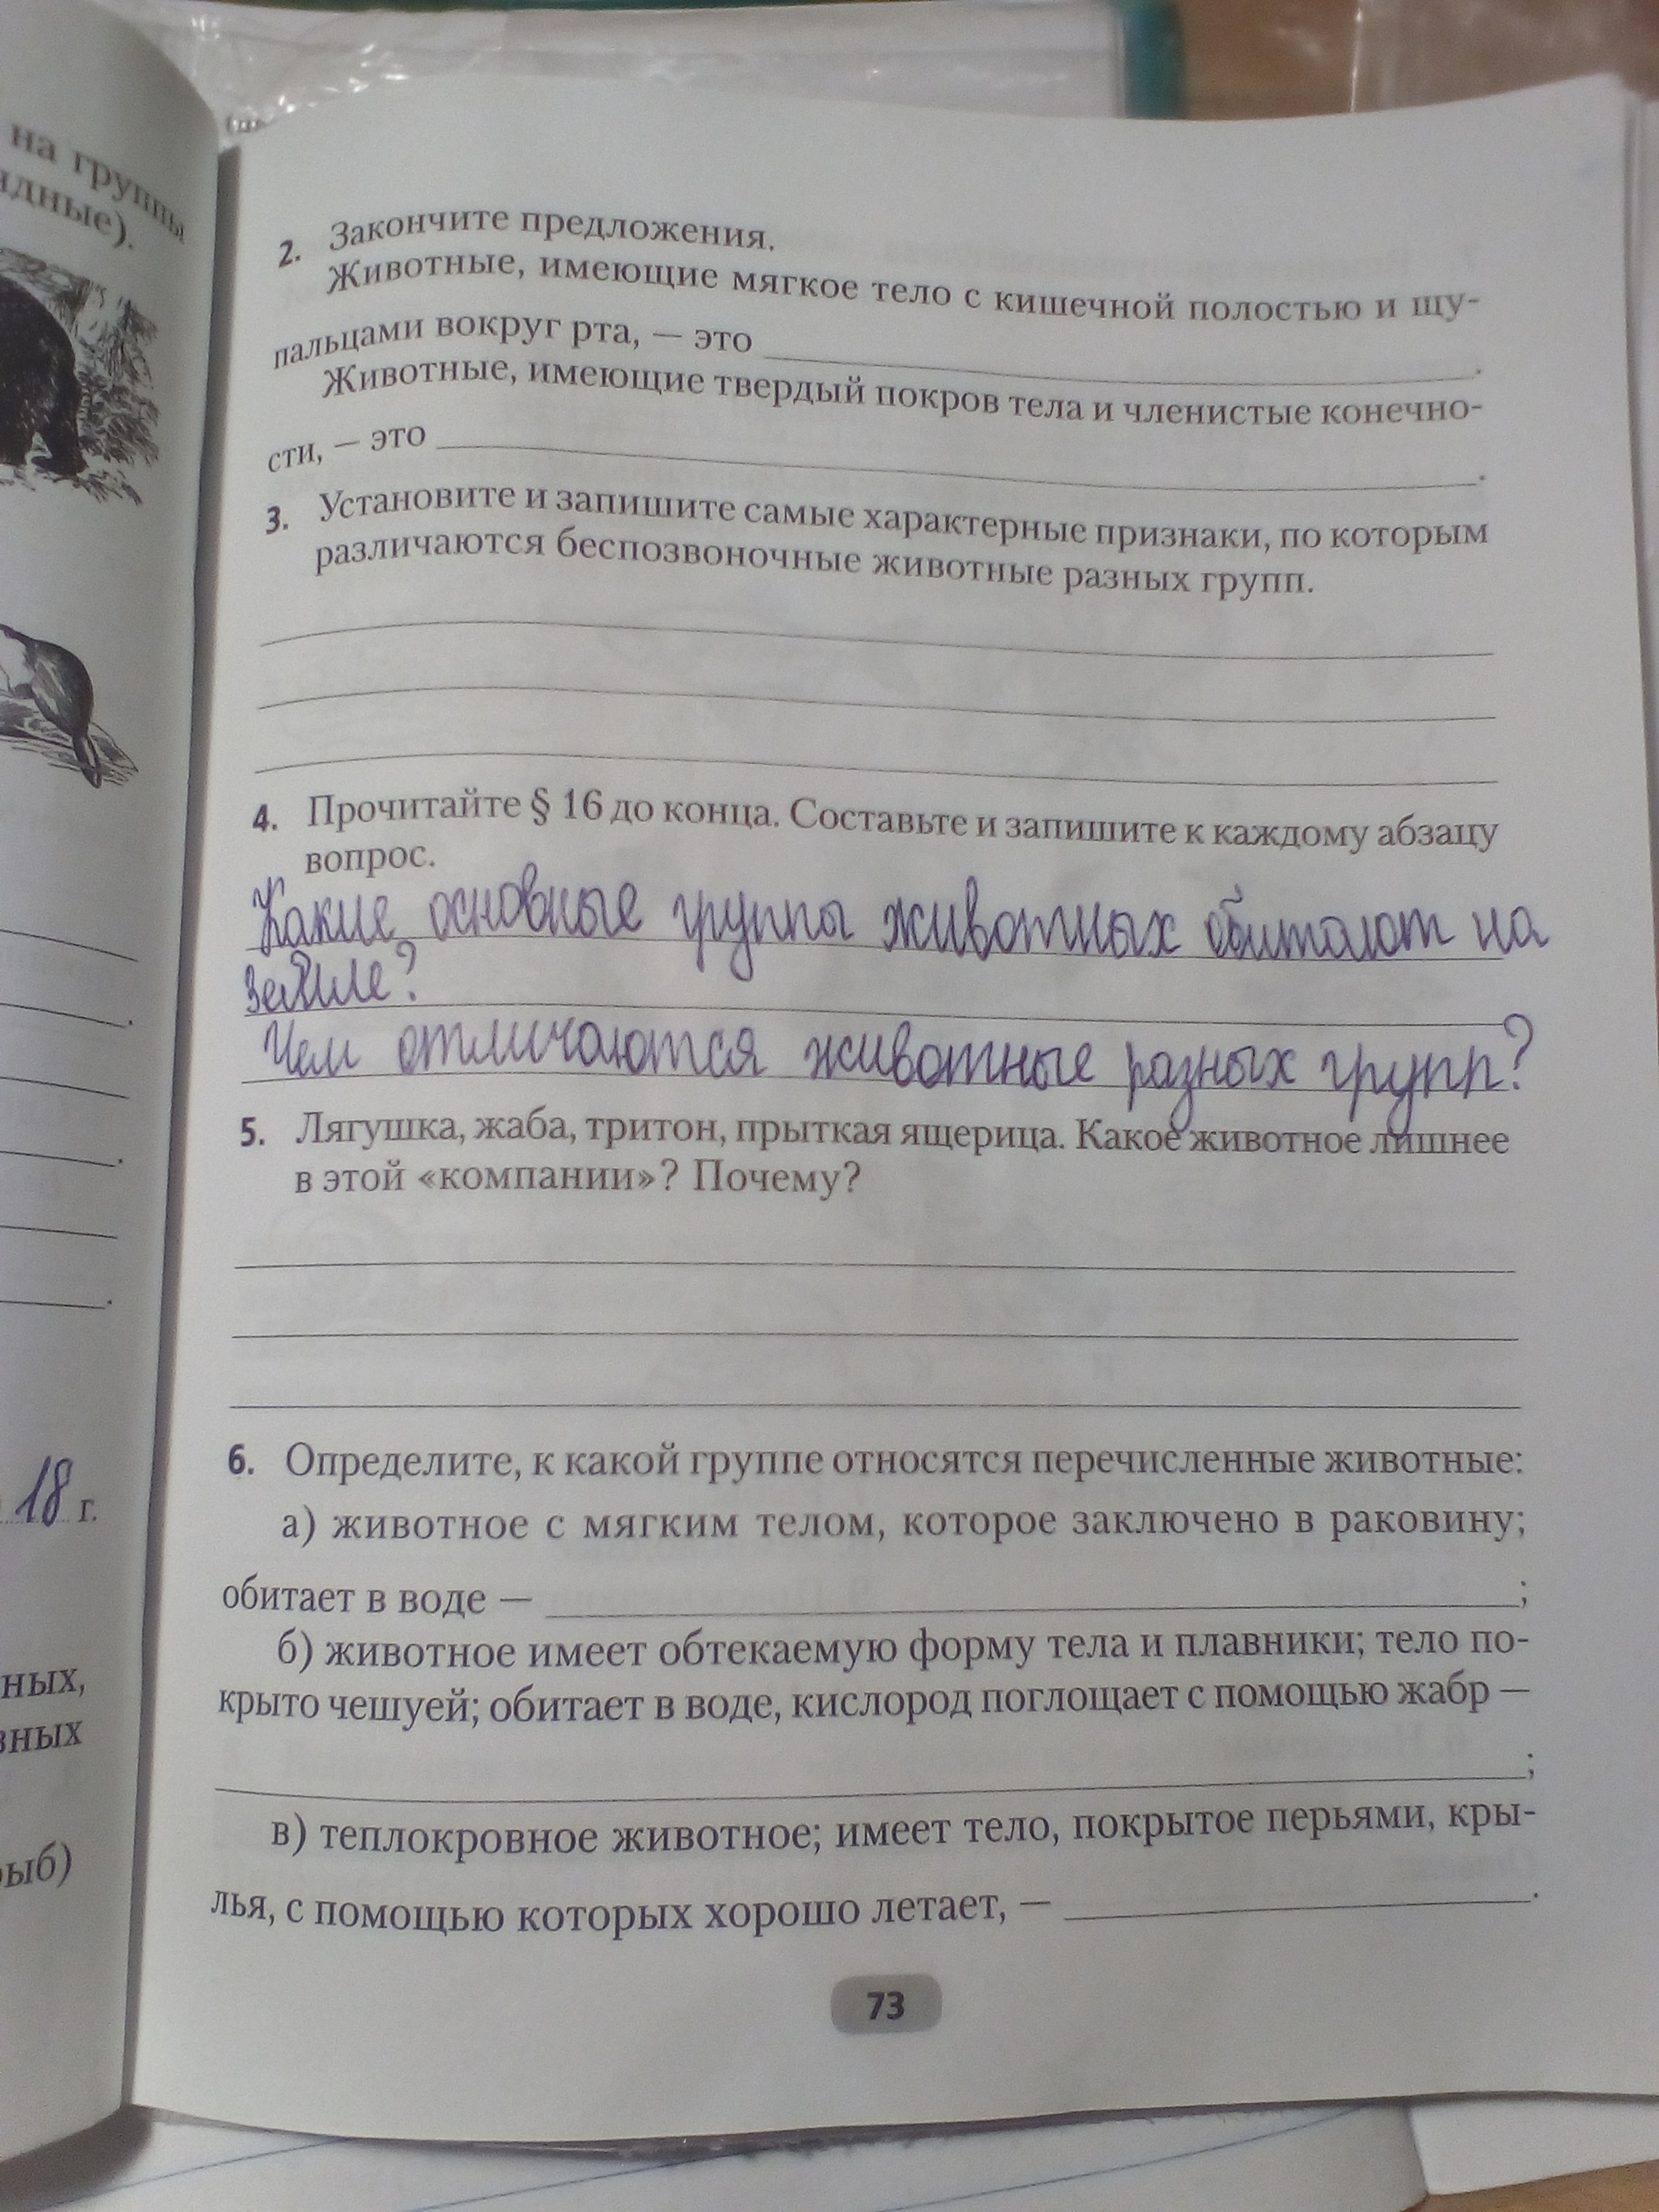 на группы
2. Закончите предложения.
Животные, имеющие мягкое тело с кишечной полостью и щу-
пальцами вокруг рта, — это
Животные, имеющие твердый покров тела и членистые конечно-
сти, — это
3. Установите и запишите самые характерные признаки, по которым
различаются беспозвоночные животные разных групп.
4. Прочитайте § 16 до конца. Составьте и запишите к каждому абзацу
вопрос.
Какие основные группы животных обитают на
земле?
Чем отличаются животные разных групп?
5. Лягушка, жаба, тритон, прыткая ящерица. Какое животное лишнее
в этой «компании»? Почему?
6. Определите, к какой группе относятся перечисленные животные:
а) животное с мягким телом, которое заключено в раковину;
обитает в воде — ;
б) животное имеет обтекаемую форму тела и плавники; тело по-
крыто чешуей; обитает в воде, кислород поглощает с помощью жабр —
;
в) теплокровное животное; имеет тело, покрытое перьями, кры-
лья, с помощью которых хорошо летает, — .
73
18 г.